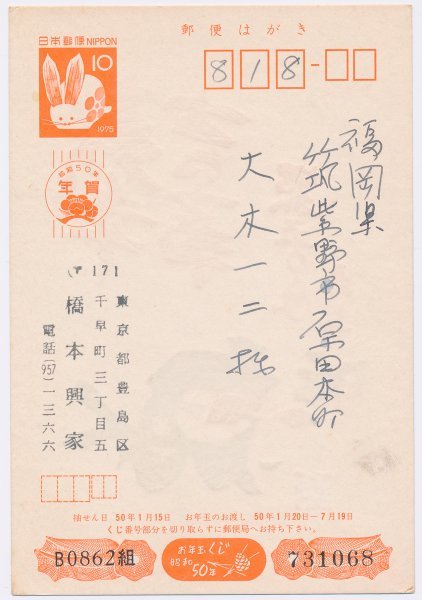 郵便はがき
日本郵便NIPPON
10
1975
818-
昭和50年
年賀
福岡県
筑紫野市原田本町
大木一二様
〒171
東京都豊島区
千早町三丁目五
橋本興家
電話(957)一三六六
抽せん日 50年1月15日 お年玉のお渡し 50年1月20日-7月19日
くじ番号部分を切り取らずに郵便局へお持ち下さい。
B0862組
お年玉くじ
昭和
50年
731068